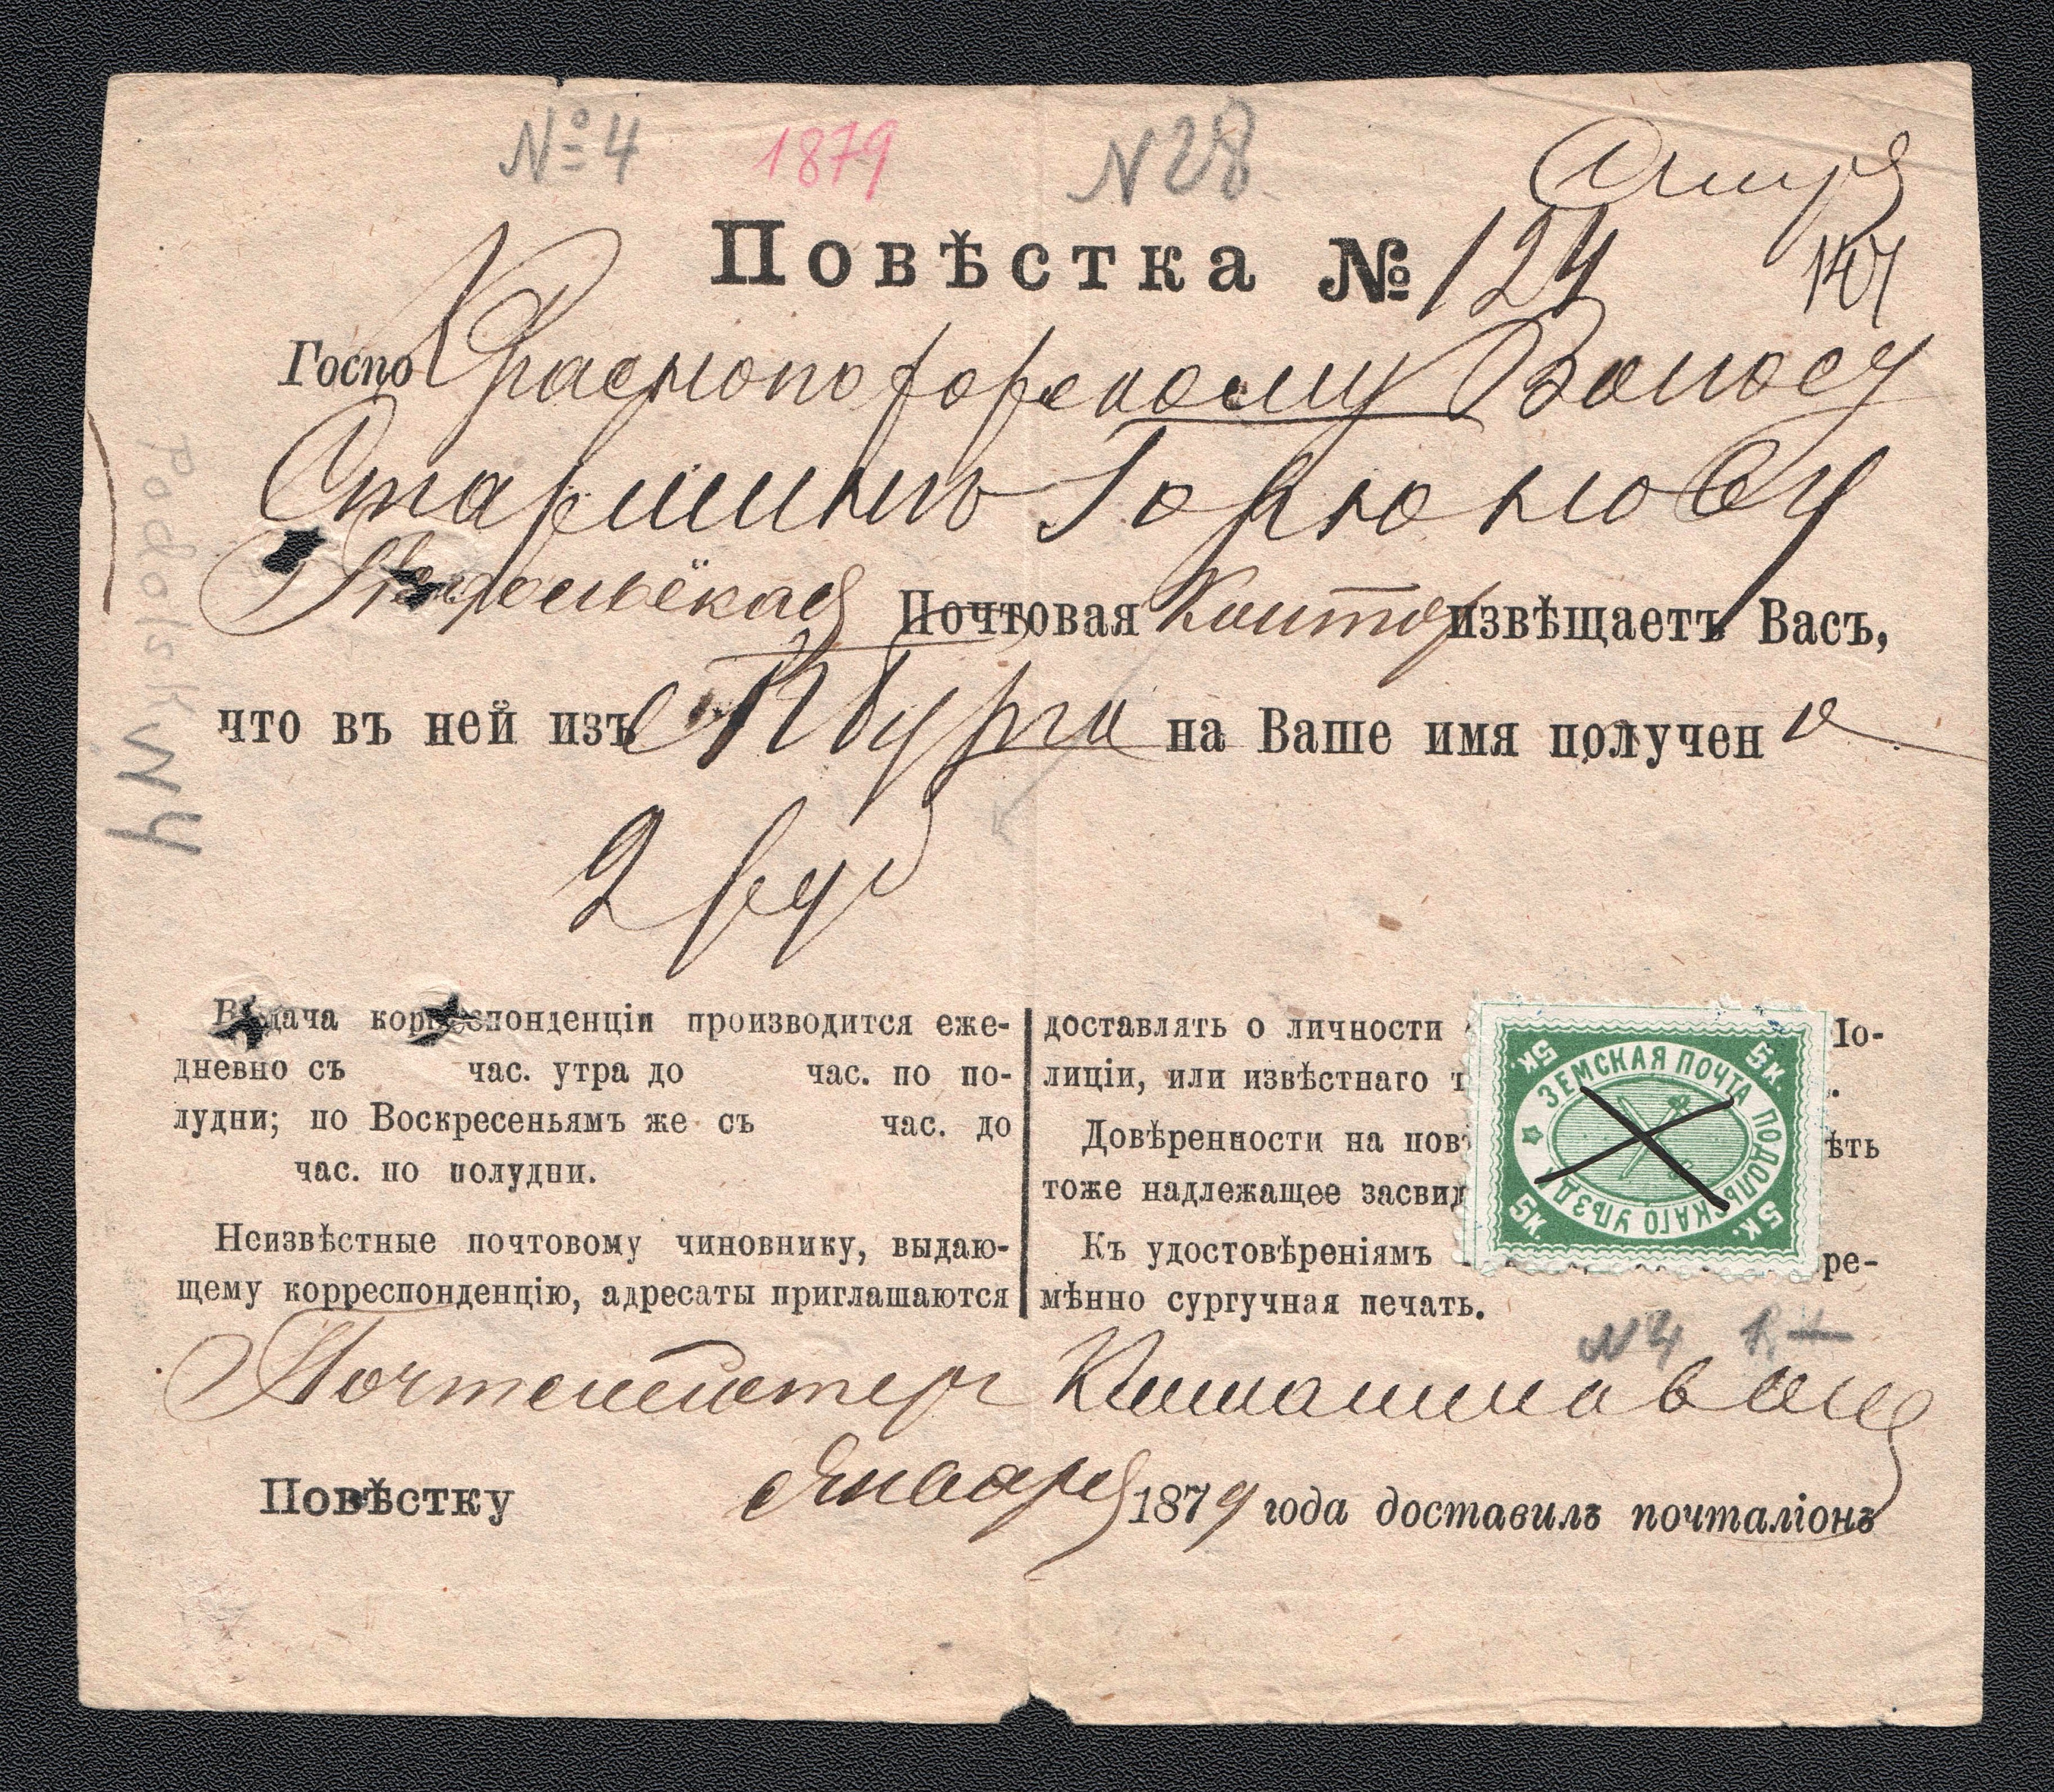 № 4 1879 N 28
Повѣстка № 124
Госпо Краснопо Волосу
Старшинѣ Горюнову
Подольская Почтовая Контор извѣщаетъ Васъ,
что въ ней изъ СПбурга на Ваше имя получен о
2 руб
Выдача корреспонденціи производится еже-
дневно съ час. утра до час. по по-
лудни; по Воскресеньямъ же съ час. до
час. по полудни.
Неизвѣстные почтовому чиновнику, выдаю-
щему корреспонденцію, адресаты приглашаются
доставлять о личности По-
лиціи, или извѣстнаго т .
Довѣренности на повѣ ѣть
тоже надлежащее засвид
Къ удостовѣреніямъ ре-
мѣнно сургучная печать.
5 К. 5 К. 5 К. 5 К.
ЗЕМСКАЯ ПОЧТА ПОДОЛЬСКАГО УѢЗДА
N4 R+
Почтмейстер
Повѣстку Января 1879 года доставилъ почталіонъ
Podolsk N4